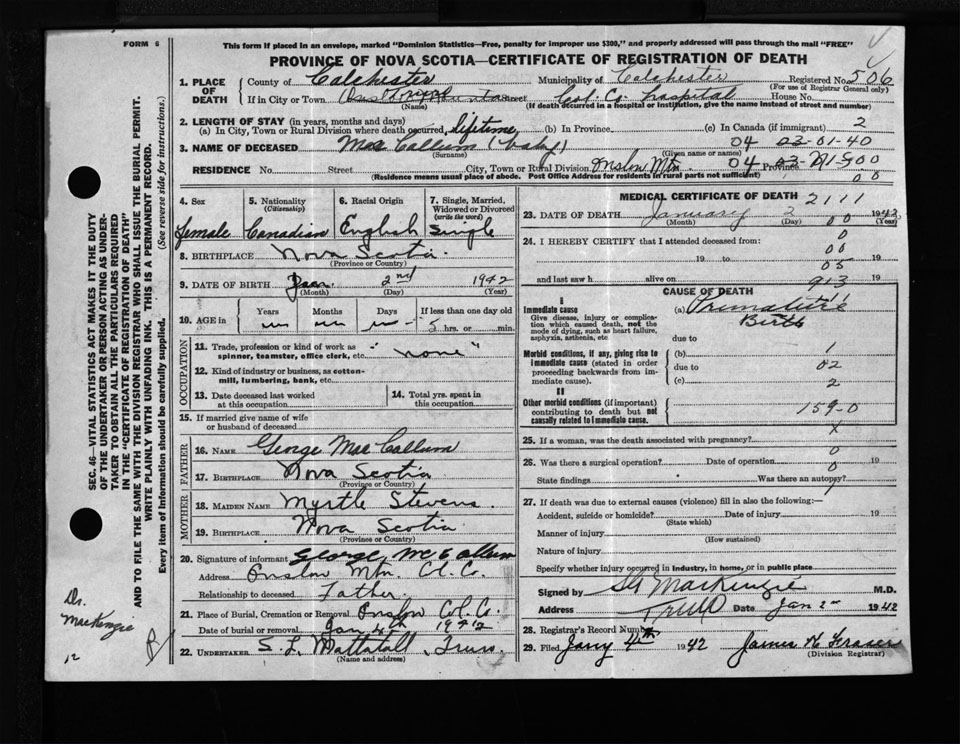 FORM 6
This form if placed in an envelope, marked "Dominion Statistics—Free, penalty for improper use $300," and properly addressed will pass through the mail "FREE"
PROVINCE OF NOVA SCOTIA—CERTIFICATE OF REGISTRATION OF DEATH
1. PLACE OF DEATH
County of Colchester Municipality of Colchester Registered No. 506
(For use of Registrar General only)
If in City or Town Street Col. Co. hospital House No.
(Name) (If death occurred in a hospital or institution, give the name instead of street and number)
2. LENGTH OF STAY (in years, months and days)
(a) In City, Town or Rural Division where death occurred, lifetime (b) In Province (c) In Canada (if immigrant) 2
3. NAME OF DECEASED MacCallum (baby) 04 03-01-40
(Surname) (Given name or names)
RESIDENCE No. Street City, Town or Rural Division Onslow Mtn. 04 Province
(Residence means usual place of abode. Post Office Address for residents in rural parts not sufficient) 00
4. Sex Female
5. Nationality (Citizenship) Canadian
6. Racial Origin English
7. Single, Married, Widowed or Divorced (write the word) Single
8. BIRTHPLACE Nova Scotia
(Province or Country)
9. DATE OF BIRTH Jan. 2nd 1942
(Month) (Day) (Year)
10. AGE in Years Months Days If less than one day old
hrs. or min.
OCCUPATION
11. Trade, profession or kind of work as spinner, teamster, office clerk, etc. "none"
12. Kind of industry or business, as cotton-mill, lumbering, bank, etc.
13. Date deceased last worked at this occupation
14. Total yrs. spent in this occupation
15. If married give name of wife or husband of deceased
FATHER
16. NAME George MacCallum
17. BIRTHPLACE Nova Scotia
(Province or Country)
MOTHER
18. MAIDEN NAME Myrtle Stevens
19. BIRTHPLACE Nova Scotia
(Province or Country)
20. Signature of informant George McCallum
Address Onslow Mtn. Col. Co.
Relationship to deceased Father
21. Place of Burial, Cremation or Removal Onslow Col. Co.
Date of burial or removal Jan 4th 1942
22. UNDERTAKER S. L. Mattatall, Truro
(Name and address)
MEDICAL CERTIFICATE OF DEATH 2111
23. DATE OF DEATH January 2 1942
(Month) 00 (Year)
24. I HEREBY CERTIFY that I attended deceased from: 0
00
19 to 19
05
and last saw h alive on 19
913
CAUSE OF DEATH
I
Immediate cause
Give disease, injury or complication which caused death, not the mode of dying, such as heart failure, asphyxia, asthenia, etc
(a) Premature Birth
due to
Morbid conditions, if any, giving rise to immediate cause (stated in order proceeding backwards from immediate cause).
(b) 1
due to 02
(c) 2
II
Other morbid conditions (if important) contributing to death but not causally related to immediate cause.
159-0
25. If a woman, was the death associated with pregnancy? X
26. Was there a surgical operation? Date of operation 0 19
State findings Was there an autopsy?
27. If death was due to external causes (violence) fill in also the following:—
Accident, suicide or homicide? Date of injury 19
(State which)
Manner of injury
(How sustained)
Nature of injury
Specify whether injury occurred in industry, in home, or in public place
Signed by MacKenzie M.D.
Address Truro Date Jan 2nd 1942
28. Registrar's Record Number
29. Filed Jany 4th 1942 James K Fraser
(Division Registrar)
SEC. 46—VITAL STATISTICS ACT MAKES IT THE DUTY
OF THE UNDERTAKER OR PERSON ACTING AS UNDER-
TAKER TO OBTAIN ALL THE PARTICULARS REQUIRED
IN THE "CERTIFICATE OF REGISTRATION OF DEATH"
AND TO FILE THE SAME WITH THE DIVISION REGISTRAR WHO SHALL ISSUE THE BURIAL PERMIT.
WRITE PLAINLY WITH UNFADING INK. THIS IS A PERMANENT RECORD.
Every item of Information should be carefully supplied. (See reverse side for instructions.)
Dr. MacKenzie
12